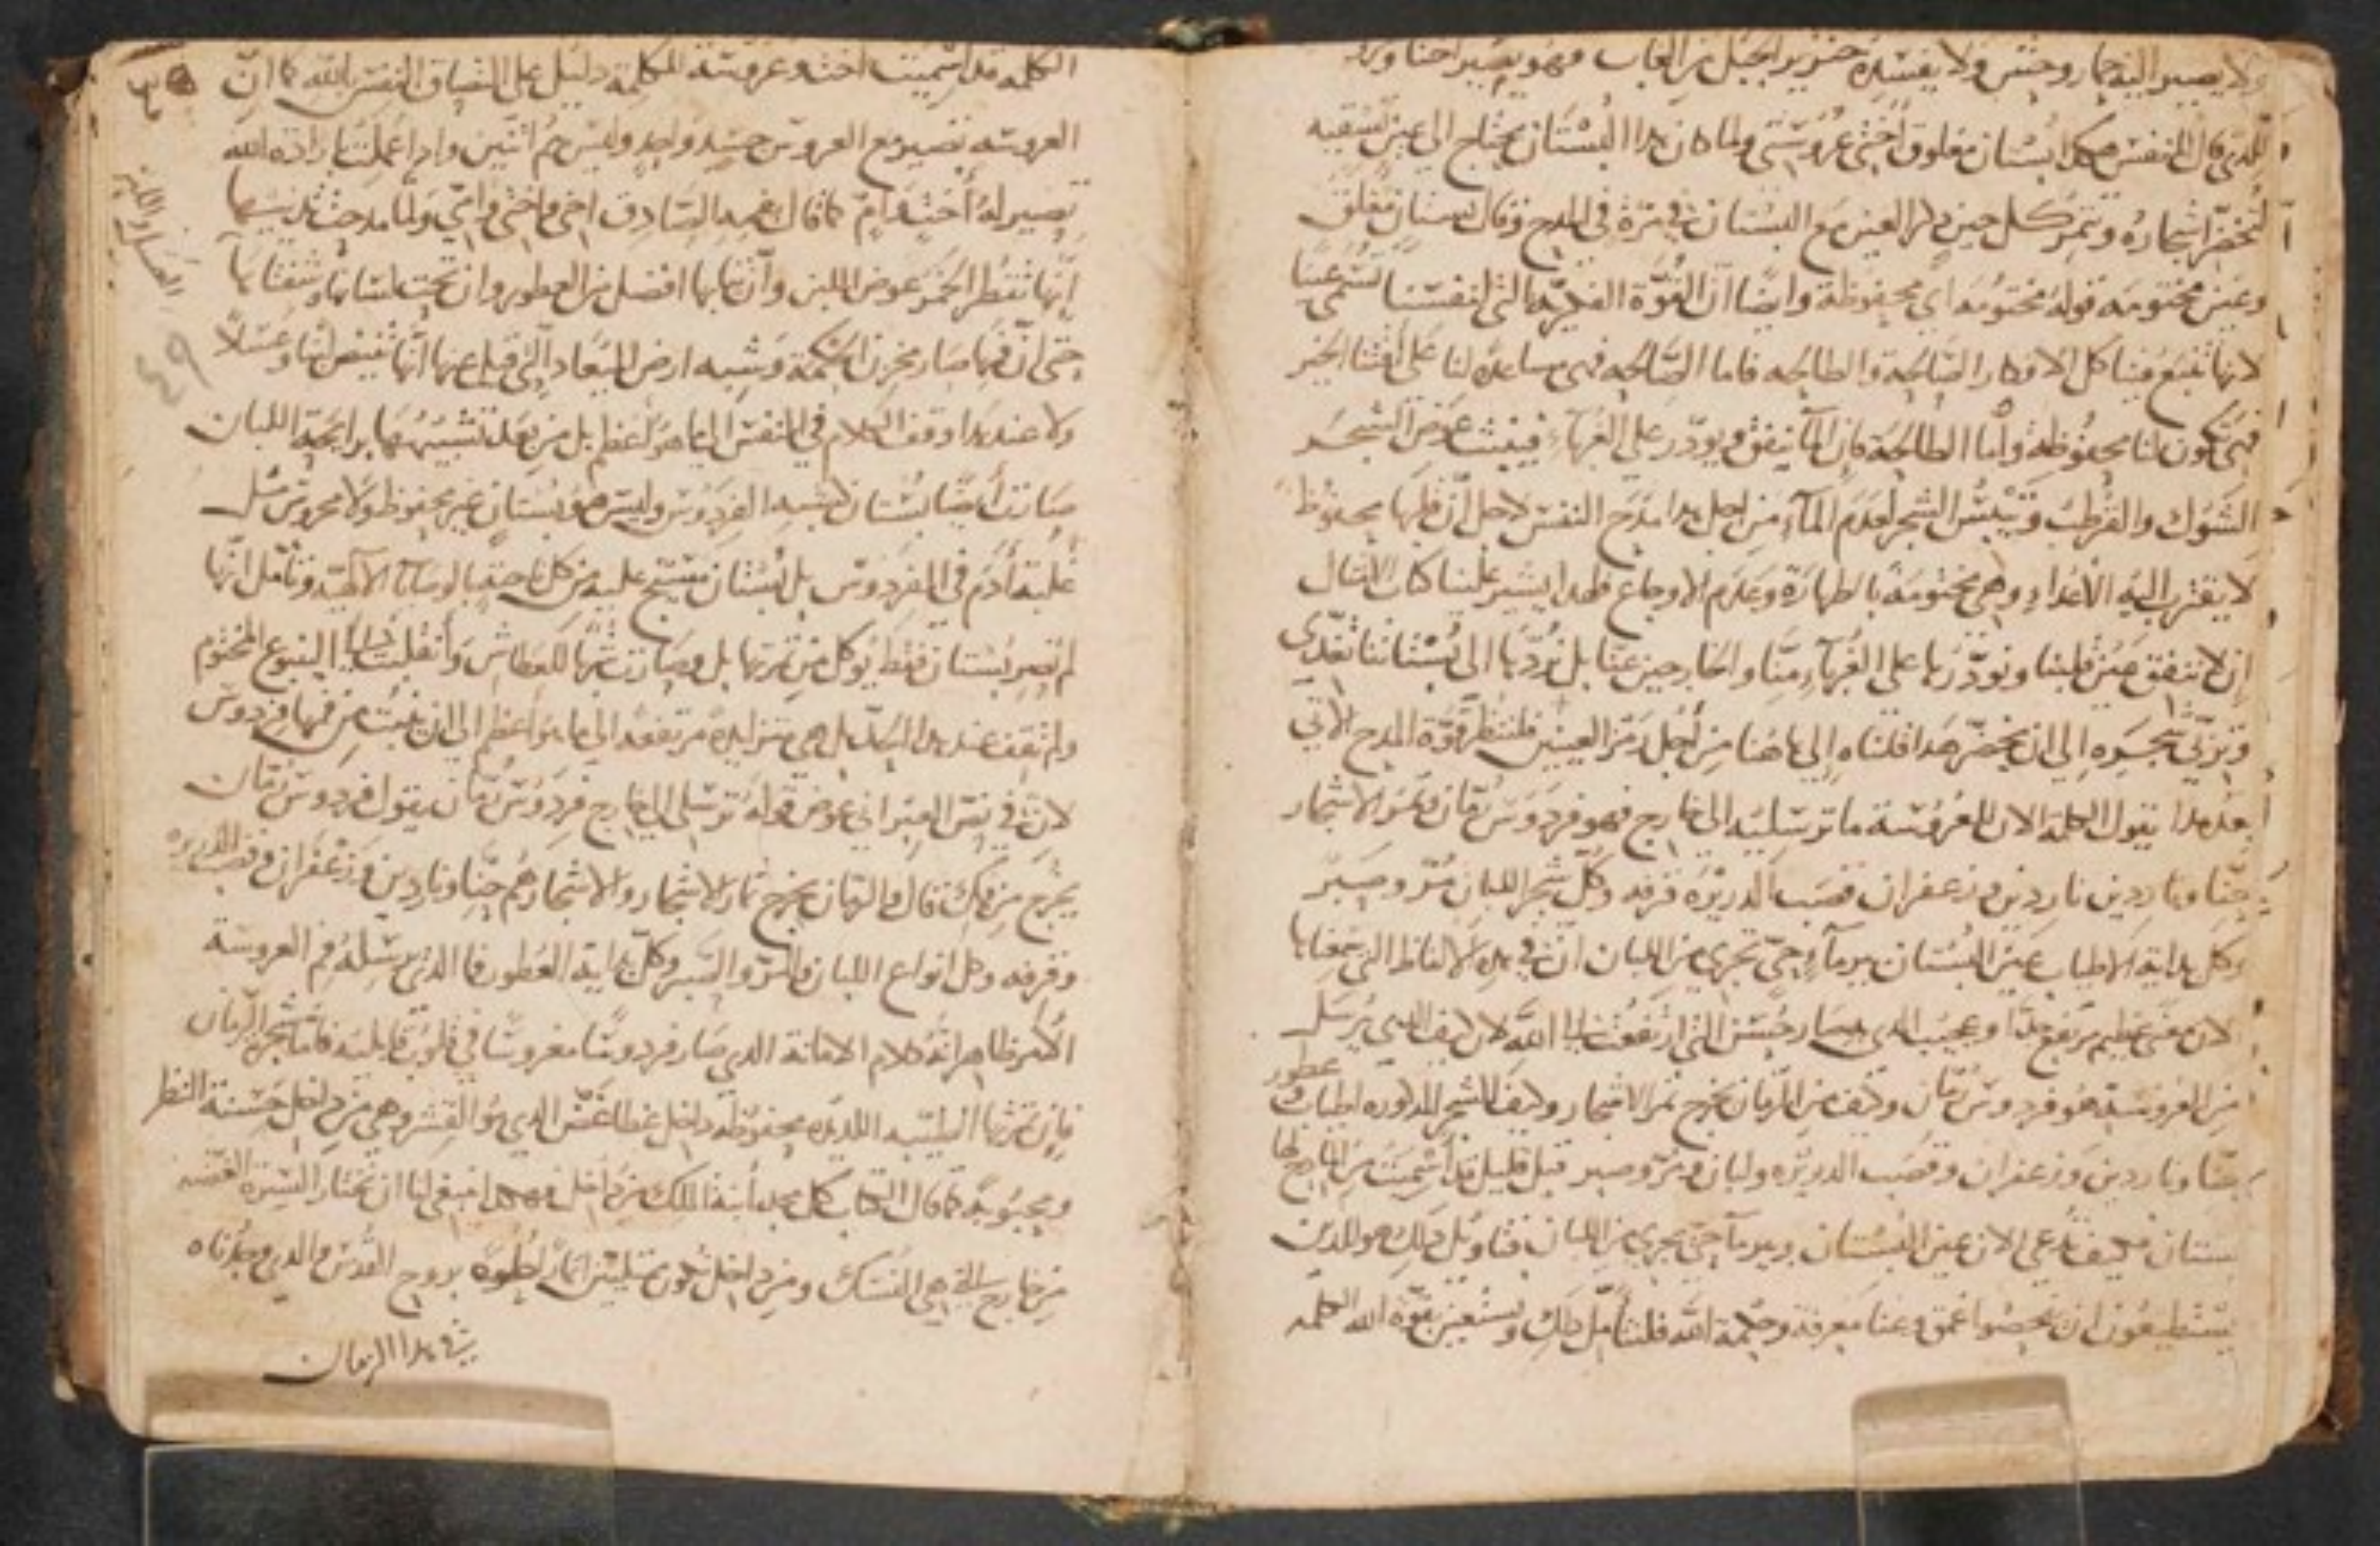 ولا يصير اليه حمار وحش ولا يفسده خنزير الجبل من الغاب فهو يصير
الدي قال للنفس هكدا بستان مغلوق اختى عروستى ولما كان هدا البستان يحتاج الى عين تسقيه
لتخضر اشجاره وتثمر كل حين دكر العين مع البستان في المدح وقال بستان مغلق
وعين مختومه قوله مختومه اي محفوظة وايضا ان القوة الفكرية التى لنفسنا تسمى عينا
لانها تنبع فينا كل الافكار الصالحة والطالحه فاما الصالحه فهى مساعده لنا على اقتنا الخير
فهى تكون لنا محفوظه واما الطالحة فان الما ينفق ويودر على الغرباء فينبت عوض الشجر
الشوك والقرطب وييبس الشجر لعدم الماء من اجل هدا مدح النفس لاجل ان قلبها محفوظ
لا يقترب اليه الاعداء وهى مختومة بالطهارة وعدم الاوجاع فهدا يشير علينا كتاب الامثال
ان لا ننفق عين قلبنا ونودرها على الغرباء منا والخارجين عنا بل نردها الى بستاننا تغدى
وتربى شجره الى ان يخضر هدا قلناه الى هاهنا من اجل رمز العينين فلننظر قوة المدح الاتي
بعد هدا يقول الكلمة الان للعروسة ما ترسليه الى خارج فهو فردوس رمان وثمر الاشجار
حنا وناردين ناردين وزعفران قصب الدريره قرفه وكل شجر اللبان مر وصبر
وكل بداية الاطياب عين البستان بير ماء حي تجري من اللبان ان في هده الالفاظ التى سمعناها
لان معنى عظيم مرتفع جدا وعجيب الدي صار حسن التى ارتفعت الى الله لان كيف الدى يرسل
من العروسة هو فردوس رمان وكيف من الرمان يخرج ثمر الاشجار وكيف الشجر المدكوره اطياب
عطور
حنا وناردين وزعفران وقصب الدريره ولبان ومر وصبر قبل قليل قد سميت من المادح لها
بستان فكيف تدعى الان عين البستان وبير ماء حي يجري من اللبان فتاويل دلك هو للدين
يستطيعون ان يفحصوا عمق وغنا معرفة وحكمة الله فلنتامل دلك ونستعين بقوة الله الكلمه
الكلمه قد سميت اخته وعروسة للكلمة دليل على التصاق النفس بالله كما ان
العروسة تصير مع العروس جسد واحد وليس هم اثنين وادا عملت بارادة الله
تصير له اخت وام كما قال بفمه الصادق اخى واختى وامي ولما مدحت تدييها
انها تقطر الخمر عوض اللبن وان ثيابها افضل من العطور وان تحت لسانها وشفتاها
حتى ان فمها صار مخزن الحكمة وشبه ارض الميعاد التى قيل عنها انها تفيض لبنا وعسلا
ولا عند هدا وقف الكلام في النفس الى ما هو اعظم بل من بعد تشبيهها برايحة اللبان
صارت ايضا بستان لتشبه الفردوس وليس هو بستان غير محفوظ ولا محروس مثل
غلبة ادم في الفردوس بل بستان مسيج عليه من كل ناحية بالوصايا الالهية وتامل انها
لم تصير بستان فقط يوكل من ثمرتها بل وصارت شربا للعطاش وانقلبت الى الينبوع المختوم
ولم تقف عند هدا الحد بل هى متزايده مرتفعه الى ما هو اعظم الى ان نبت من فمها فردوس
لان في نص العبراني عوض قوله ترسلى الى خارج فردوس رمان يقول فردوس رمان
يخرج من فمك قال والرمان يخرج ثمار الاشجار والاشجار هم حنا وناردين وزعفران وقصب الدريره
وقرفه وكل انواع اللبان والمر والصبر وكل بداية العطور فما الدى يرسله فم العروسة
الامر ظاهر انه كلام الامانة الدي صار فردوسا مغروسا في قلوب قابليه فاما شجرة الرمان
فان ثمرتها الطيبه اللديده محفوظة داخل غطا غش الدي هو القشر وهى من داخل حسنة النظر
ومحبوبة كما قال الكتاب كل مجد ابنة الملك من داخل فهكدا ينبغى لنا ان نختار السيرة
من خارج التى هى النسك ومن داخل نكون ممتليين اثمار لديده بروح القدس والدي وجدناه
في هدا الرمان
٤٩